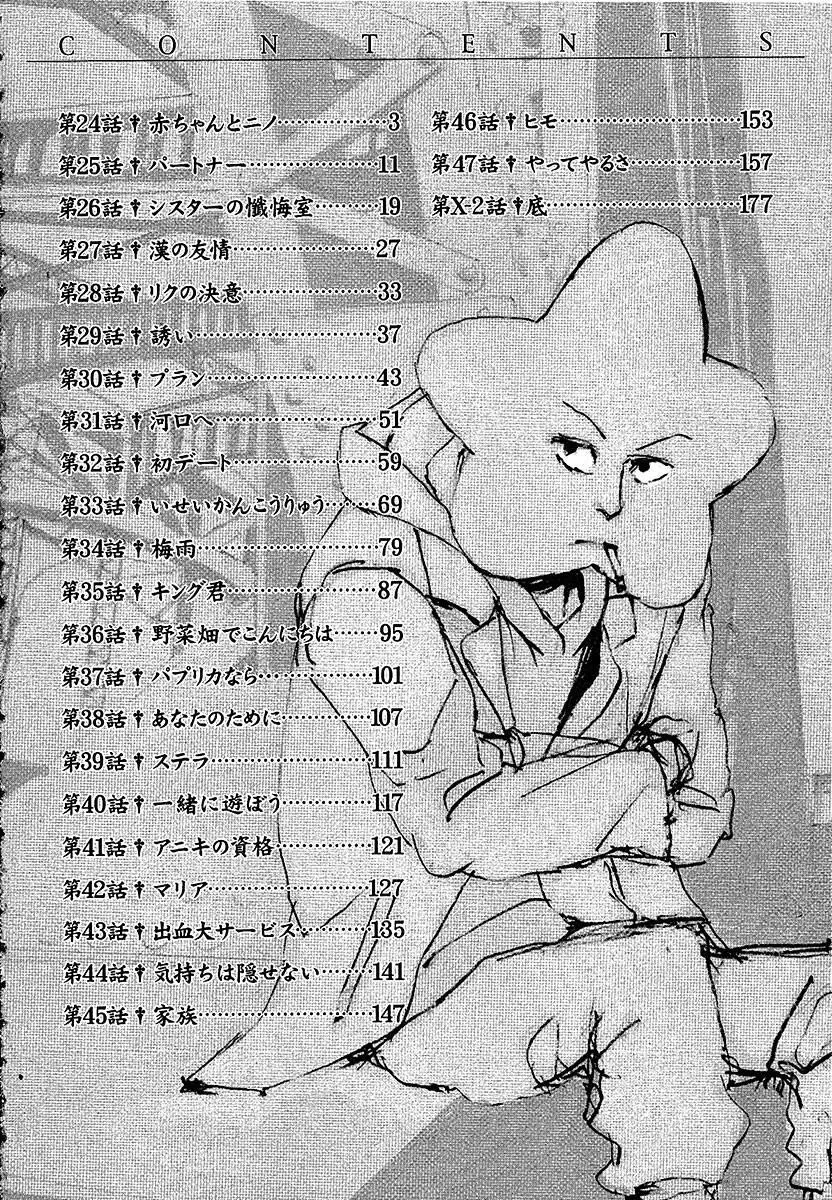 CONTENTS
第24話✝赤ちゃんとニノ…………3
第25話✝パートナー…………11
第26話✝シスターの懺悔室…………19
第27話✝漢の友情…………27
第28話✝リクの決意…………33
第29話✝誘い…………37
第30話✝プラン…………43
第31話✝河口へ…………51
第32話✝初デート…………59
第33話✝いせいかんこうりゅう…………69
第34話✝梅雨…………79
第35話✝キング君…………87
第36話✝野菜畑でこんにちは…………95
第37話✝パプリカなら…………101
第38話✝あなたのために…………107
第39話✝ステラ…………111
第40話✝一緒に遊ぼう…………117
第41話✝アニキの資格…………121
第42話✝マリア…………127
第43話✝出血大サービス…………135
第44話✝気持ちは隠せない…………141
第45話✝家族…………147
第46話✝ヒモ…………153
第47話✝やってやるさ…………157
第X-2話✝底…………177